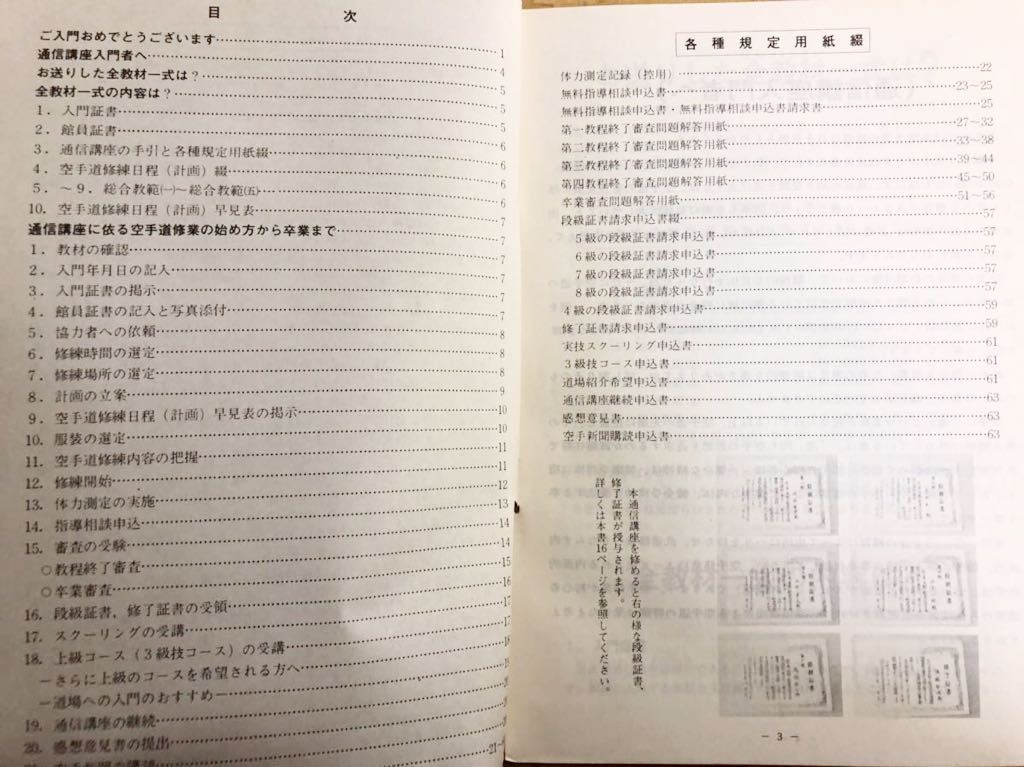 目 次
ご入門おめでとうございます
通信講座入門者へ……1
お送りした全教材一式は？……4
全教材一式の内容は？……5
1．入門証書……5
2．館員証書……5
3．通信講座の手引と各種規定用紙綴……6
4．空手道修練日程（計画）綴……6
5．～9．総合教範㈠～総合教範㈤……6
10．空手道修練日程（計画）早見表……6
通信講座に依る空手道修業の始め方から卒業まで……7
1．教材の確認……7
2．入門年月日の記入……7
3．入門証書の掲示……7
4．館員証書の記入と写真添付……7
5．協力者への依頼……7
6．修練時間の選定……8
7．修練場所の選定……8
8．計画の立案……8
9．空手道修練日程（計画）早見表の掲示……9
10．服装の選定……10
11．空手道修練内容の把握……10
12．修練開始……11
13．体力測定の実施……11
14．指導相談申込……12
15．審査の受験……13
○教程終了審査……14
○卒業審査……14
16．段級証書，修了証書の受領……15
17．スクーリングの受講……16
18．上級コース（3級技コース）の受講……17
－さらに上級のコースを希望される方へ……17
－道場への入門のおすすめ－……18
19．通信講座の継続
20．感想意見書の提出
21～
各種規定用紙綴
体力測定記録（控用）……22
無料指導相談申込書……23～25
無料指導相談申込書・無料指導相談申込書請求書……25
第一教程終了審査問題解答用紙……27～32
第二教程終了審査問題解答用紙……33～38
第三教程終了審査問題解答用紙……39～44
第四教程終了審査問題解答用紙……45～50
卒業審査問題解答用紙……51～56
段級証書請求申込書綴……57
5級の段級証書請求申込書……57
6級の段級証書請求申込書……57
7級の段級証書請求申込書……57
8級の段級証書請求申込書……57
4級の段級証書請求申込書……59
修了証書請求申込書……59
実技スクーリング申込書……61
3級技コース申込書……61
道場紹介希望申込書……61
通信講座継続申込書……63
感想意見書……63
空手新聞購読申込書……63
本通信講座を修めると右の様な段級証書、
修了証書が授与されます。
詳しくは本書16ページを参照してください。
－ 3 －